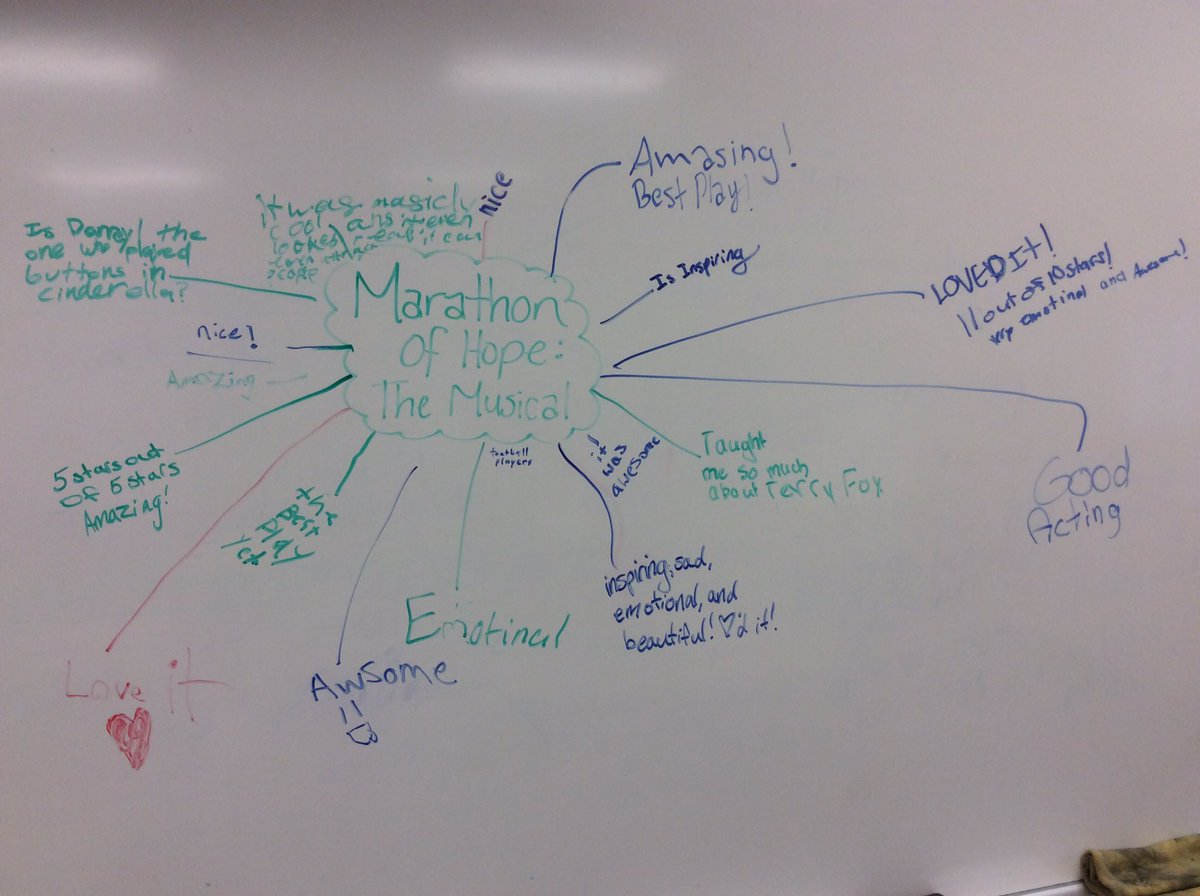 Marathon
Of Hope:
The Musical
nice
Amasing!
Best Play!
Is Inspiring
LOVED It!
11 out of 10 stars!
emotinal and Awesome!
Good
Acting
Taught
me so much
about Terry Fox
it!
was
awesome
inspiring, sad,
emotional, and
beautiful! ♡'d it!
football
players
Emotinal
Awsome
Best
Play
Love it
5 stars out
of 5 stars
Amazing!
Amazing
nice!
Is Darrel the
one who played
buttons in
cinderolla?
it was magicly
cool and it even
looked real it can
people